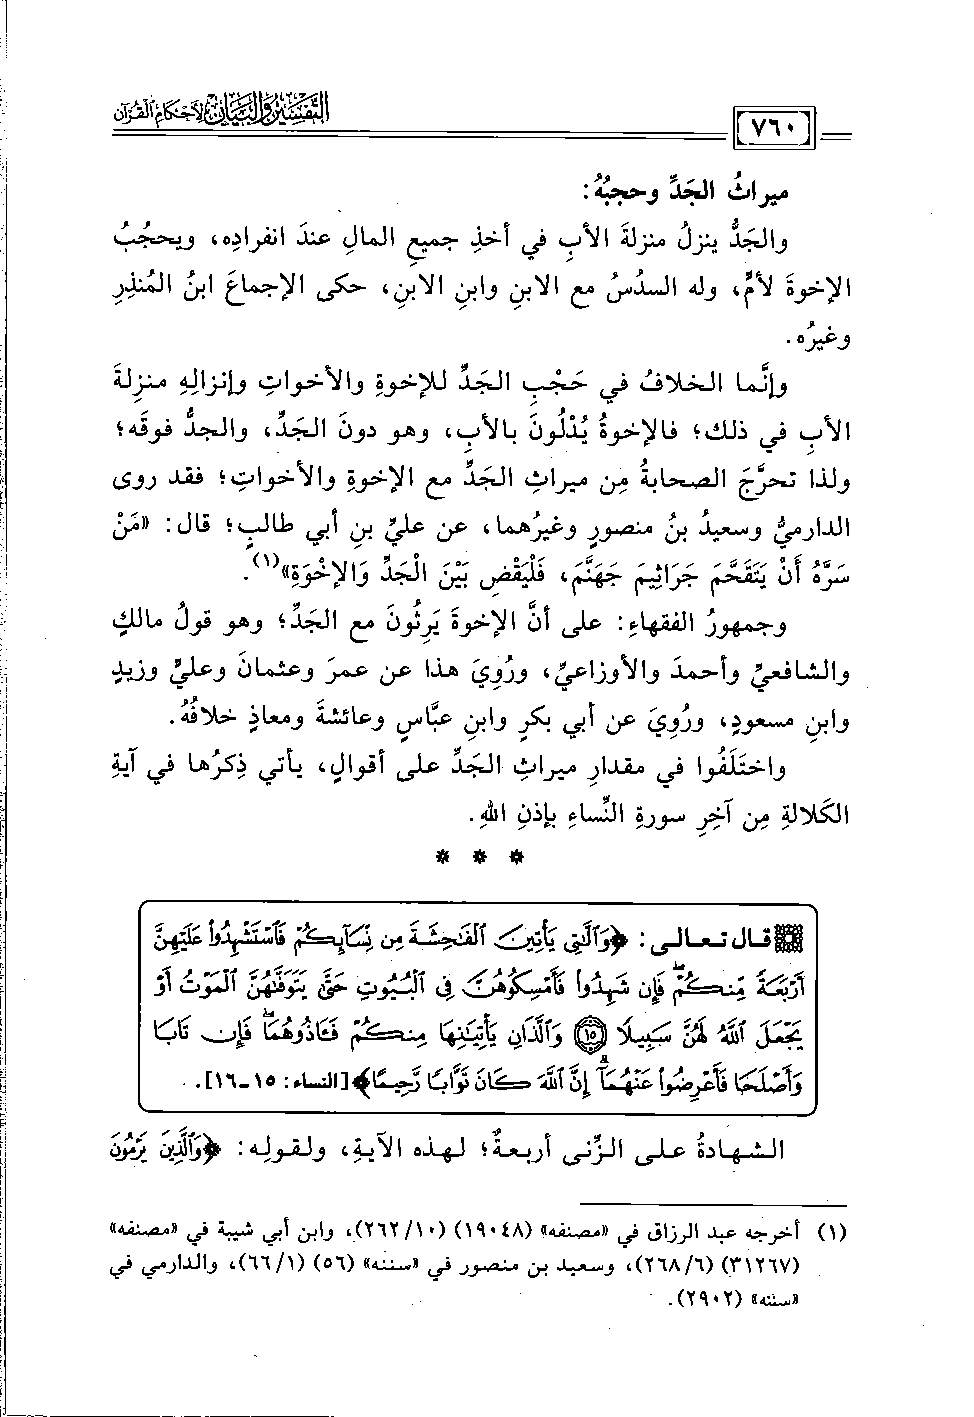 التفسير والبيان لأحكام القرآن
٧٦٠
ميراثُ الجَدِّ وحجبُهُ:
والجَدُّ ينزلُ منزلةَ الأبِ في أخذِ جميعِ المالِ عندَ انفرادِه، ويحجُبُ
الإخوةَ لأمٍّ، وله السدُسُ مع الابنِ وابنِ الابنِ، حكى الإجماعَ ابنُ المُنذِرِ
وغيرُه.
وإنَّما الخلافُ في حَجْبِ الجَدِّ للإخوةِ والأخواتِ وإنزالِهِ منزلةَ
الأبِ في ذلك؛ فالإخوةُ يُدْلُونَ بالأبِ، وهو دونَ الجَدِّ، والجدُّ فوقَه؛
ولذا تحرَّجَ الصحابةُ مِن ميراثِ الجَدِّ مع الإخوةِ والأخواتِ؛ فقد روى
الدارميُّ وسعيدُ بنُ منصورٍ وغيرُهما، عن عليِّ بنِ أبي طالبٍ؛ قال: «مَنْ
سَرَّهُ أَنْ يَتَقَحَّمَ جَرَاثِيمَ جَهَنَّمَ، فَلْيَقْضِ بَيْنَ الْجَدِّ وَالإِخْوَةِ»(١).
وجمهورُ الفقهاءِ: على أنَّ الإخوةَ يَرِثُونَ مع الجَدِّ؛ وهو قولُ مالكٍ
والشافعيِّ وأحمدَ والأوزاعيِّ، ورُوِيَ هذا عن عمرَ وعثمانَ وعليٍّ وزيدٍ
وابنِ مسعودٍ، ورُوِيَ عن أبي بكرٍ وابنِ عبَّاسٍ وعائشةَ ومعاذٍ خلافُهُ.
واختَلَفُوا في مقدارِ ميراثِ الجَدِّ على أقوالٍ، يأتي ذِكرُها في آيةِ
الكَلالةِ مِن آخِرِ سورةِ النِّساءِ بإذنِ اللهِ.
* * *
قال تعالى: ﴿وَٱلَّٰتِي يَأۡتِينَ ٱلۡفَٰحِشَةَ مِن نِّسَآئِكُمۡ فَٱسۡتَشۡهِدُواْ عَلَيۡهِنَّ
أَرۡبَعَةٗ مِّنكُمۡۖ فَإِن شَهِدُواْ فَأَمۡسِكُوهُنَّ فِي ٱلۡبُيُوتِ حَتَّىٰ يَتَوَفَّىٰهُنَّ ٱلۡمَوۡتُ أَوۡ
يَجۡعَلَ ٱللَّهُ لَهُنَّ سَبِيلٗا ١٥ وَٱلَّذَانِ يَأۡتِيَٰنِهَا مِنكُمۡ فَـَٔاذُوهُمَاۖ فَإِن تَابَا
وَأَصۡلَحَا فَأَعۡرِضُواْ عَنۡهُمَآۗ إِنَّ ٱللَّهَ كَانَ تَوَّابٗا رَّحِيمًا﴾ [النساء: ١٥-١٦].
الشهادةُ على الزِّنى أربعةٌ؛ لهذه الآيةِ، ولقولِه: ﴿وَٱلَّذِينَ يَرۡمُونَ
(١) أخرجه عبد الرزاق في «مصنفه» (١٩٠٤٨) (١٠/٢٦٢)، وابن أبي شيبة في «مصنفه»
(٣١٢٦٧) (٦/٢٦٨)، وسعيد بن منصور في «سننه» (٥٦) (١/٦٦)، والدارمي في
«سننه» (٢٩٠٢).